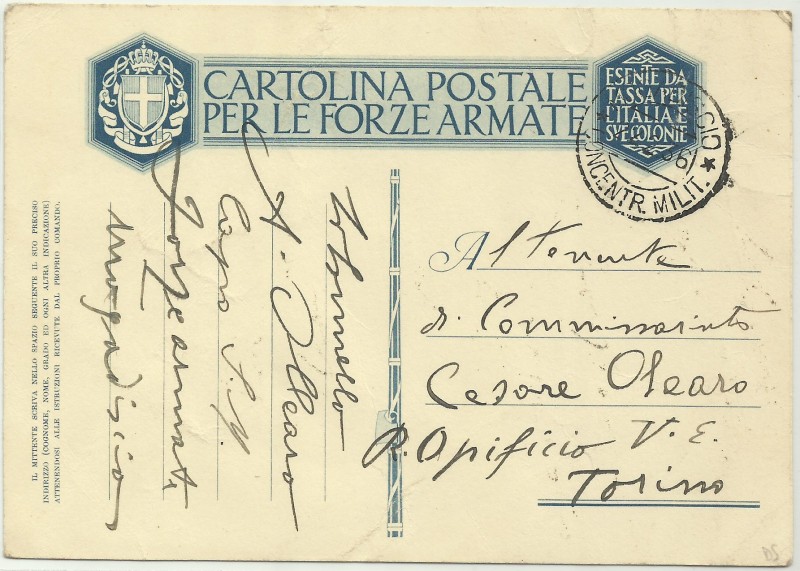 CARTOLINA POSTALE
PER LE FORZE ARMATE
ESENTE DA
TASSA PER
L'ITALIA E
SVE COLONIE
CONCENTR. MILIT. *
Al Tenente
di Commissariato
Cesare Olearo
R. Opificio V. E.
Torino
A. Olearo
Capo S. M.
Forze armate
Mogadiscio
IL MITTENTE SCRIVA NELLO SPAZIO SEGUENTE IL SUO PRECISO
INDIRIZZO (COGNOME, NOME, GRADO ED OGNI ALTRA INDICAZIONE)
ATTENENDOSI ALLE ISTRUZIONI RICEVUTE DAL PROPRIO COMANDO.